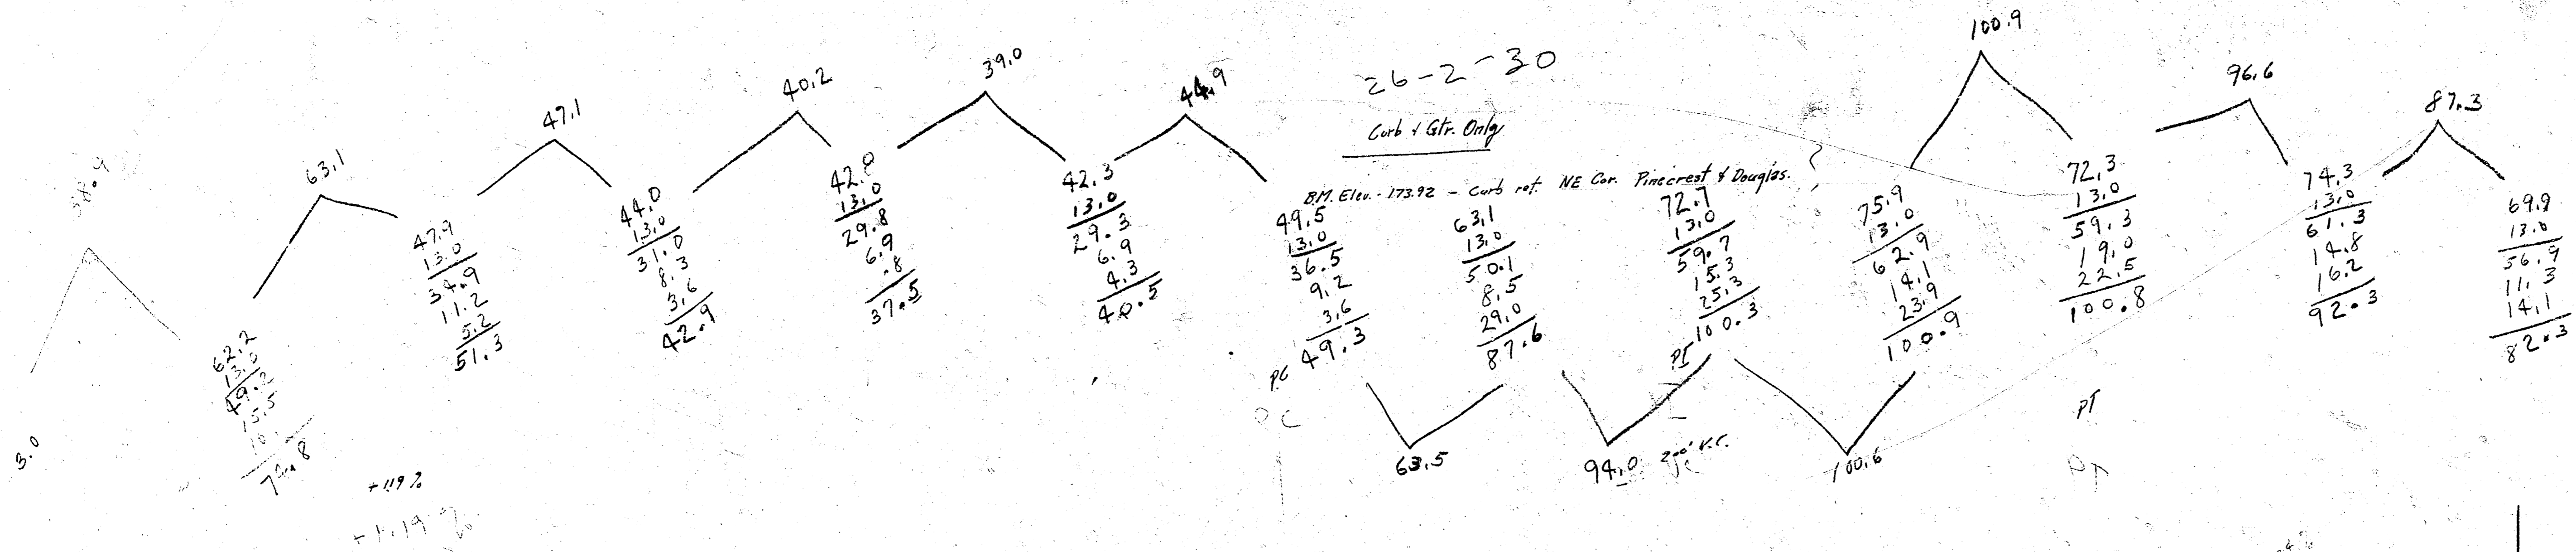 100.9
26-2-30
39.0
96.6
40.2
44.9
87.3
47.1
Curb & Gtr. Only
63.1
58.9
B.M. Elev. - 173.92 - Curb ret. NE Cor. Pinecrest & Douglas.
62.2
13.0
49.2
15.5
10.
74.8
47.9
13.0
34.9
11.2
5.2
51.3
44.0
13.0
31.0
8.3
3.6
42.9
42.8
13.0
29.8
6.9
.8
37.5
42.3
13.0
29.3
6.9
4.3
40.5
49.5
13.0
36.5
9.2
3.6
49.3
63.1
13.0
50.1
8.5
29.0
87.6
72.7
13.0
59.7
15.3
25.3
100.3
75.9
13.0
62.9
14.1
23.9
100.9
72.3
13.0
59.3
19.0
22.5
100.8
74.3
13.0
61.3
14.8
16.2
92.3
69.9
13.0
56.9
11.3
14.1
82.3
P.C
PI
PC
PT
3.0
63.5
94.0
200' V.C.
100.6
PT
+1.19%
+1.19%